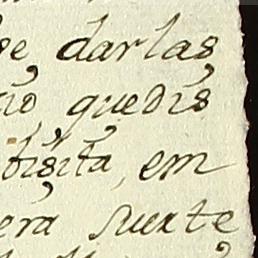 se darlas
quedis
bisita, em
era suerte